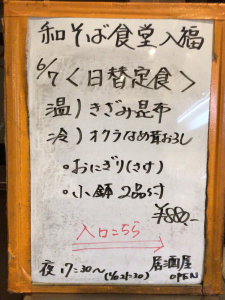 和そば食堂入福
6/7 〈日替定食〉
温)きざみ昆布
冷)オクラなめ茸おろし
。おにぎり(さけ)
。小鉢2品付
¥880-
入口こちら
夜17:30〜 居酒屋
OPEN